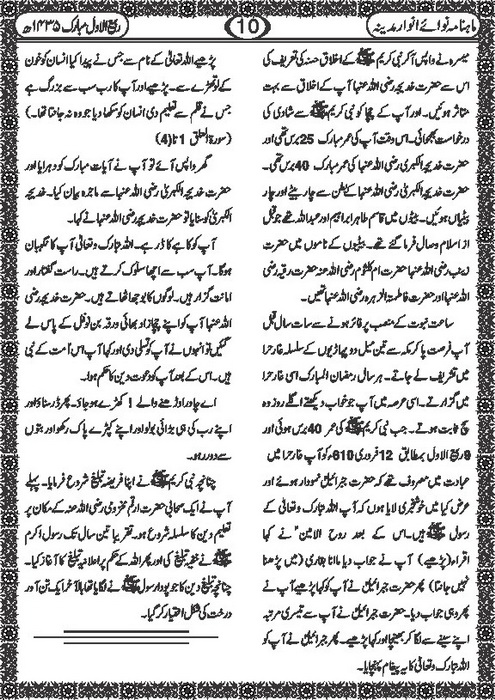 ماہنامہ نوائے انوار مدینہ
10
ربیع الاول مبارک ۱۴۳۵ھ
میسرہ نے واپس آ کر نبی کریم ﷺ کے اخلاق حسنہ کی تعریف کی
اس سے حضرت خدیجہ رضی اللہ عنہا آپ کے اخلاق سے بہت
متاثر ہوئیں۔ اور آپ کے چچا کو نبی کریم ﷺ سے شادی کی
درخواست بھجوائی۔ اس وقت آپ کی عمر مبارک 25 برس تھی اور
حضرت خدیجۃ الکبریٰ رضی اللہ عنہا کی عمر مبارک 40 برس تھی۔
حضرت خدیجۃ الکبریٰ رضی اللہ عنہا کے بطن سے چار بیٹے اور چار
بیٹیاں ہوئیں۔ بیٹوں میں قاسم طاہر ابراہیم اور عبداللہ تھے جو قبل
از اسلام وصال فرما گئے تھے۔ بیٹیوں کے ناموں میں حضرت
زینب رضی اللہ عنہا حضرت ام کلثوم رضی اللہ عنہ حضرت رقیہ رضی
اللہ عنہا اور حضرت فاطمۃ الزہرہ رضی اللہ عنہا تھیں۔
ساعت نبوت کے منصب پر فائز ہونے سے سات سال قبل
آپ فرصت پا کر مکہ سے تین میل دور پہاڑیوں کے سلسلہ غار حرا
میں تشریف لے جاتے۔ ہر سال رمضان المبارک اسی غار حرا
میں گزارتے۔ اسی عرصہ میں آپ جو خواب دیکھتے اگلے روز وہ
سچ ثابت ہوتے۔ جب نبی کریم ﷺ کی عمر 40 برس ہوئی اور
9 ربیع الاول بمطابق 12 فروری 610ء کو آپ غار حرا میں
عبادت میں مصروف تھے کہ حضرت جبرائیل نمودار ہوئے اور
عرض کیا میں خوشخبری لایا ہوں کہ آپ اللہ تبارک وتعالیٰ کے
رسول ﷺ ہیں۔ اس کے بعد روح الامین نے کہا
اقراء (پڑھیے) آپ نے جواب دیا ما انا بقاری (میں پڑھنا
نہیں جانتا) پھر حضرت جبرائیل نے آپ کو کہا پڑھیے آپ نے
پھر وہی جواب دیا۔ حضرت جبرائیل نے آپ سے تیسری مرتبہ
اپنے سینے سے لگا کر بھینچا اور کہا پڑھیے۔ پھر جبرائیل نے آپ کو
اللہ تبارک وتعالیٰ کا یہ پیغام پہنچایا۔
پڑھیے اللہ تعالیٰ کے نام سے جس نے پیدا کیا انسان کو خون
کے لوتھڑے سے۔ پڑھیے اور آپ کا رب سب سے بزرگ ہے
جس نے قلم سے تعلیم دی انسان کو سکھا دیا جو وہ نہ جانتا تھا۔)
(سورۃ العلق 1 تا 4)
گھر واپس آئے تو آپ نے آیات مبارک کو دہرایا اور
حضرت خدیجۃ الکبریٰ رضی اللہ عنہا سے ماجرہ بیان کیا۔ خدیجہ
الکبریٰ کو سنایا تو حضرت خدیجہ رضی اللہ عنہا نے کہا۔
آپ کو کاہے کا ڈر ہے۔ اللہ تبارک وتعالیٰ آپ کا نگہبان
ہوگا۔ آپ سب سے اچھا سلوک کرتے ہیں۔ راست گفتار اور
امانت گزار ہیں۔ لوگوں کا بوجھ اٹھاتے ہیں۔ حضرت خدیجہ رضی
اللہ عنہا آپ کو اپنے چچا زاد بھائی ورقہ بن نوفل کے پاس لے
گئیں تو انہوں نے آپ کو تسلی دی اور کہا آپ اس امت کے نبی
ہیں۔ اس کے بعد آپ کو دعوت دین کا حکم ہوا۔
اے چادر اوڑھنے والے! کھڑے ہو جاؤ۔ پھر ڈر سناؤ اور
اپنے رب کی ہی بڑائی بولو اور اپنے کپڑے پاک رکھو اور بتوں
سے دور رہو۔
چنانچہ نبی کریم ﷺ نے اپنا فریضہ تبلیغ شروع فرمایا۔ پہلے
آپ نے ایک صحابی حضرت ارقم مخزومی رضی اللہ عنہ کے مکان پر
تعلیم دین کا سلسلہ شروع ہو۔ تقریباً تین سال تک رسول اکرم
ﷺ نے خفیہ تبلیغ کی اور پھر اللہ کے حکم پر اعلانیہ تبلیغ کا آغاز کیا۔
چنانچہ تبلیغ دین کا جو پودا رسول ﷺ نے لگایا تھا بالآخر ایک تن آور
درخت کی شکل اختیار کر گیا۔